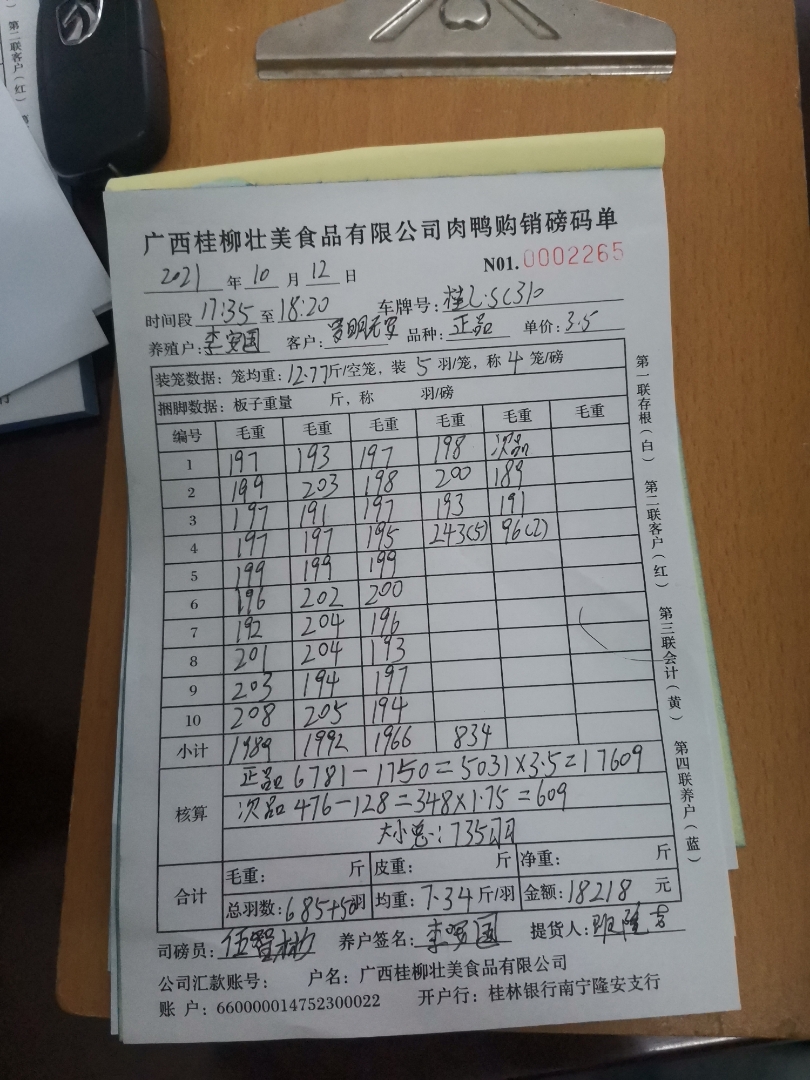 第二联客户（红）
广西桂柳壮美食品有限公司肉鸭购销磅码单
2021年10月12日 N01.0002265
时间段17:35至18:20 车牌号:桂L·SC310
养殖户:李 国 客户: 品种:正品 单价:3.5
装笼数据:笼均重:12.77斤/空笼,装5羽/笼,称4笼/磅
捆脚数据:板子重量 斤,称 羽/磅
编号 毛重 毛重 毛重 毛重 毛重 毛重
1 197 193 197 198 次品
2 199 203 198 200 189
3 197 191 197 193 191
4 197 197 195 243(5) 96(2)
5 199 199 199
6 196 202 200
7 192 204 196
8 201 204 193
9 203 194 197
10 208 205 194
小计 1989 1992 1966 834
核算 正品 6781-1750=5031×3.5=17609
次品 476-128=348×1.75=609
大小总:735羽
合计 毛重: 斤 皮重: 斤 净重: 斤
总羽数:685+50羽 均重:7.34斤/羽 金额:18218元
司磅员: 养户签名: 提货人:
公司汇款账号: 户名:广西桂柳壮美食品有限公司
账 户:660000014752300022 开户行:桂林银行南宁隆安支行
第一联存根（白） 第二联客户（红） 第三联会计（黄） 第四联养户（蓝）